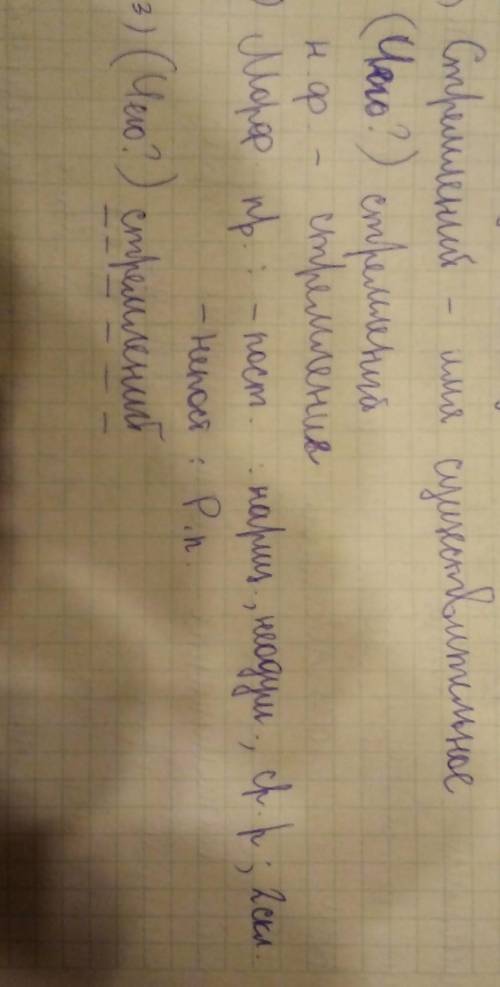 ) Стремлений - имя существительное
(Чего?) стремлений
н.ф - стремление
) Морф пр.: - пост. : нариц., неодуш., ср.р., 2 скл.
- Непост : Р.п.
3) (Чего?) стремлений